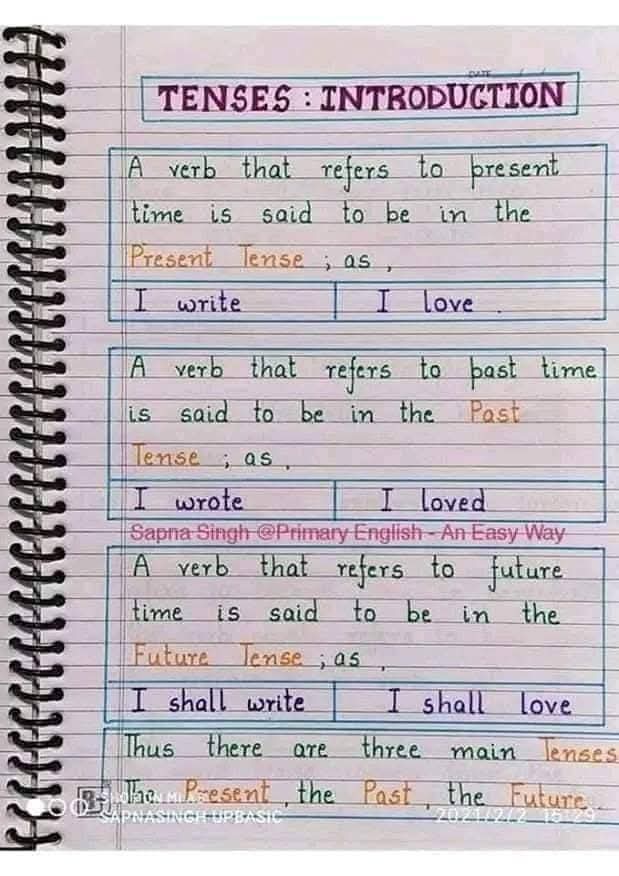 DATE
TENSES : INTRODUCTION
A verb that refers to present
time is said to be in the
Present Tense ; as ,
I write I love .
A verb that refers to past time
is said to be in the Past
Tense ; as ,
I wrote I loved
Sapna Singh @Primary English - An Easy Way
A verb that refers to future
time is said to be in the
Future Tense ; as ,
I shall write I shall love
Thus there are three main Tenses
The Present , the Past , the Future .
SHOT ON MI A3
SAPNASINGH UPBASIC 2021/2/2 15:29